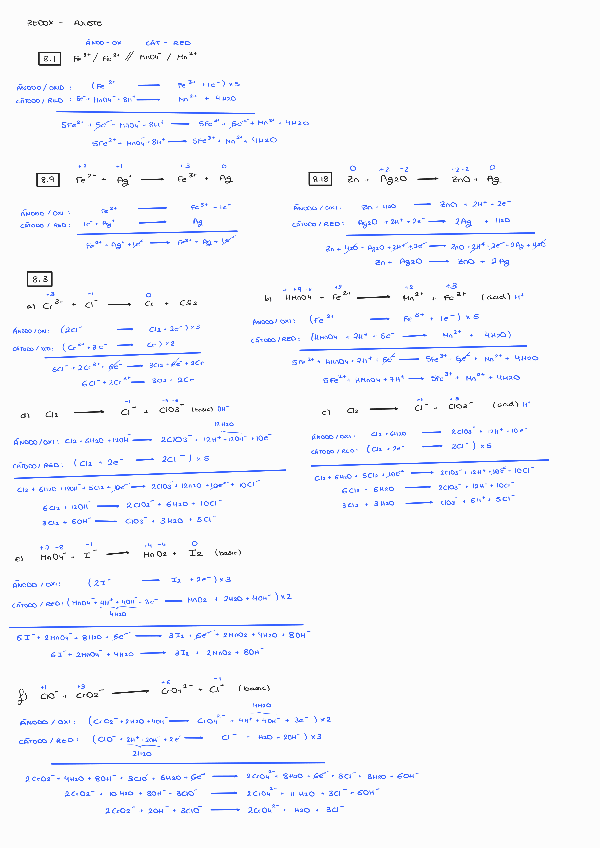 REDOX - AJUSTE
ÁNODO-OX CÁT - RED
8.1 Fe²⁺ / Fe³⁺ // MnO4⁻ / Mn²⁺
ÁNODO / OXID : (Fe²⁺ → Fe³⁺ + 1e⁻) × 5
CÁTODO / RED : 5e⁻ + MnO4⁻ + 8H⁺ → Mn²⁺ + 4H2O
5Fe²⁺ + 5e⁻ + MnO4⁻ + 8H⁺ → 5Fe³⁺ + 5e⁻ + Mn²⁺ + 4H2O
5Fe²⁺ + MnO4⁻ + 8H⁺ → 5Fe³⁺ + Mn²⁺ + 4H2O
8.9 Fe²⁺ + Ag⁺ → Fe³⁺ + Ag
ÁNODO / OXI : Fe²⁺ → Fe³⁺ + 1e⁻
CÁTODO / RED : 1e⁻ + Ag⁺ → Ag
Fe²⁺ + Ag⁺ + 1e⁻ → Fe³⁺ + Ag + 1e⁻
0 +2 -2 +2-2 0
8.18 Zn + Ag2O → ZnO + Ag
ÁNODO / OXI : Zn + H2O → ZnO + 2H⁺ + 2e⁻
CÁTODO / RED : Ag2O + 2H⁺ + 2e⁻ → 2Ag + H2O
Zn + H2O + Ag2O + 2H⁺ + 2e⁻ → ZnO + 2H⁺ + 2e⁻ + 2Ag + H2O
Zn + Ag2O → ZnO + 2Ag
8.3
+3 -1 0
a) Cr³⁺ + Cl⁻ → Cr + Cl2
ÁNODO / OXI : (2Cl⁻ → Cl2 + 2e⁻) × 3
CÁTODO / RED : (Cr³⁺ + 3e⁻ → Cr) × 2
6Cl⁻ + 2Cr³⁺ + 6e⁻ → 3Cl2 + 6e⁻ + 2Cr
6Cl⁻ + 2Cr³⁺ → 3Cl2 + 2Cr
b) HMnO4 + Fe²⁺ → Mn²⁺ + Fe³⁺ (ácid) H⁺
ÁNODO / OXI : (Fe²⁺ → Fe³⁺ + 1e⁻) × 5
CÁTODO / RED : (HMnO4 + 7H⁺ + 5e⁻ → Mn²⁺ + 4H2O)
5Fe²⁺ + HMnO4 + 7H⁺ + 5e⁻ → 5Fe³⁺ + 5e⁻ + Mn²⁺ + 4H2O
5Fe²⁺ + HMnO4 + 7H⁺ → 5Fe³⁺ + Mn²⁺ + 4H2O
d) Cl2 → Cl⁻ + ClO3⁻ (basic) OH⁻
12H2O
ÁNODO / OXI : Cl2 + 6H2O + 12OH⁻ → 2ClO3⁻ + 12H⁺ + 12OH⁻ + 10e⁻
CÁTODO / RED : (Cl2 + 2e⁻ → 2Cl⁻) × 5
Cl2 + 6H2O + 12OH⁻ + 5Cl2 + 10e⁻ → 2ClO3⁻ + 12H2O + 10e⁻ + 10Cl⁻
6Cl2 + 12OH⁻ → 2ClO3⁻ + 6H2O + 10Cl⁻
3Cl2 + 6OH⁻ → ClO3⁻ + 3H2O + 5Cl⁻
c) Cl2 → Cl⁻ + ClO3⁻ (ácid) H⁺
ÁNODO / OXI : Cl2 + 6H2O → 2ClO3⁻ + 12H⁺ + 10e⁻
CÁTODO / RED : (Cl2 + 2e⁻ → 2Cl⁻) × 5
Cl2 + 6H2O + 5Cl2 + 10e⁻ → 2ClO3⁻ + 12H⁺ + 10e⁻ + 10Cl⁻
6Cl2 + 6H2O → 2ClO3⁻ + 12H⁺ + 10Cl⁻
3Cl2 + 3H2O → ClO3⁻ + 6H⁺ + 5Cl⁻
+7 -8 -1 +4 -4 0
e) MnO4⁻ + I⁻ → MnO2 + I2 (basic)
ÁNODO / OXI : (2I⁻ → I2 + 2e⁻) × 3
CÁTODO / RED : (MnO4⁻ + 4H⁺ + 4OH⁻ + 3e⁻ → MnO2 + 2H2O + 4OH⁻) × 2
4H2O
6I⁻ + 2MnO4⁻ + 8H2O + 6e⁻ → 3I2 + 6e⁻ + 2MnO2 + 4H2O + 8OH⁻
6I⁻ + 2MnO4⁻ + 4H2O → 3I2 + 2MnO2 + 8OH⁻
+1 +3 +6 -1
f) ClO⁻ + CrO2⁻ → CrO4²⁻ + Cl⁻ (basic)
4H2O
ÁNODO / OXI : (CrO2⁻ + 2H2O + 4OH⁻ → CrO4²⁻ + 4H⁺ + 4OH⁻ + 3e⁻) × 2
CÁTODO / RED : (ClO⁻ + 2H⁺ + 2OH⁻ + 2e⁻ → Cl⁻ + H2O + 2OH⁻) × 3
2H2O
2CrO2⁻ + 4H2O + 8OH⁻ + 3ClO⁻ + 6H2O + 6e⁻ → 2CrO4²⁻ + 8H2O + 6e⁻ + 3Cl⁻ + 3H2O + 6OH⁻
2CrO2⁻ + 10H2O + 8OH⁻ + 3ClO⁻ → 2CrO4²⁻ + 11H2O + 3Cl⁻ + 6OH⁻
2CrO2⁻ + 2OH⁻ + 3ClO⁻ → 2CrO4²⁻ + H2O + 3Cl⁻